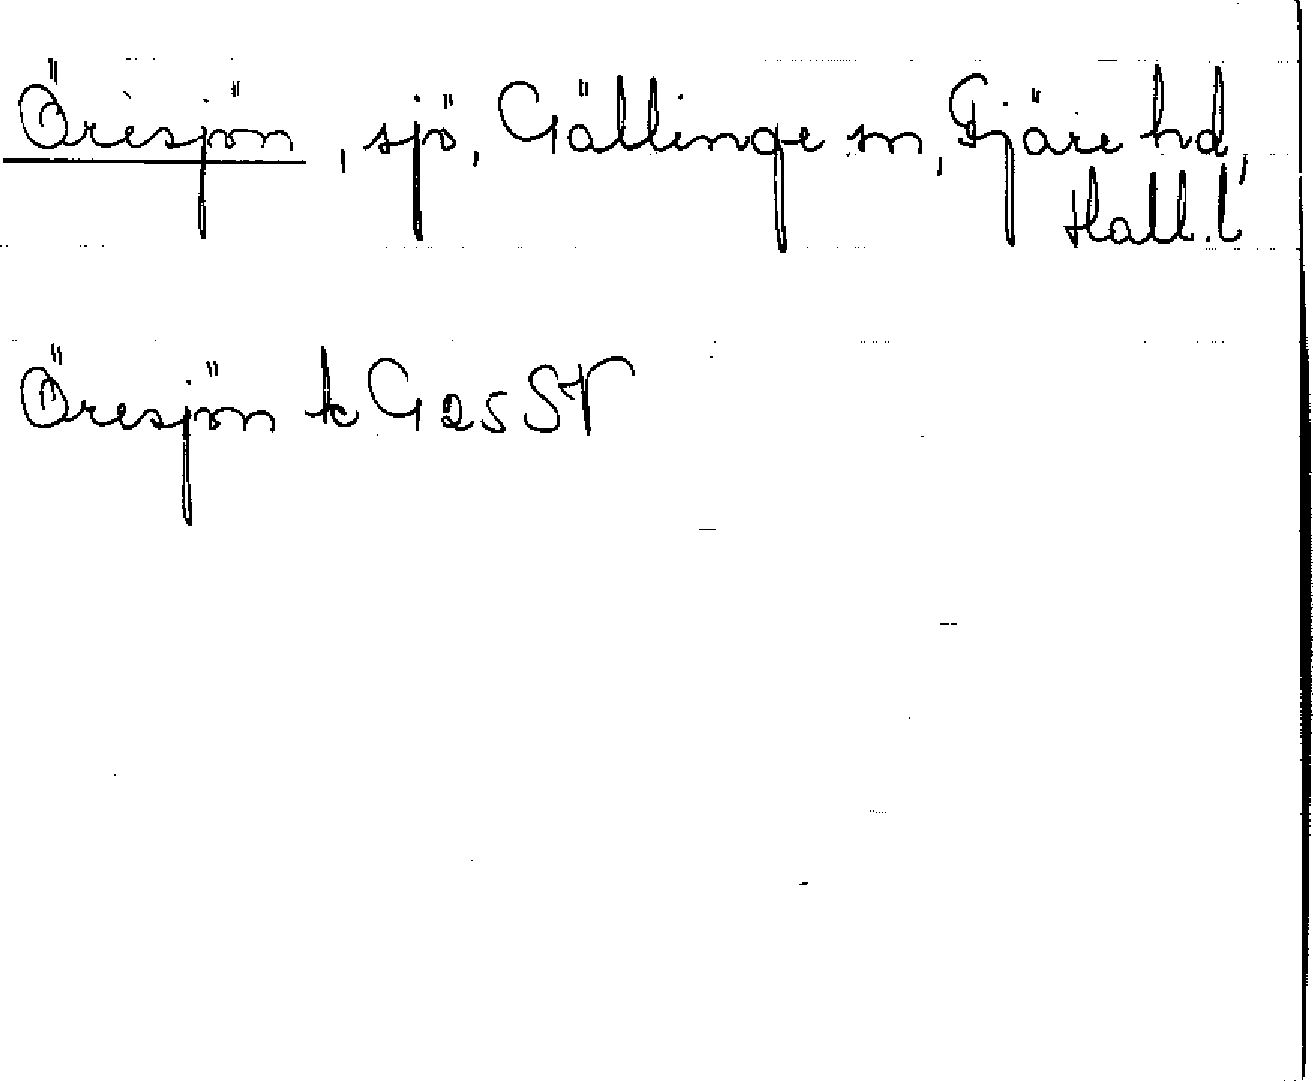 Öresjön, sjö, Gällinge sn, Fjäre hd,
Hall. l
Öresjön k G 25 SV